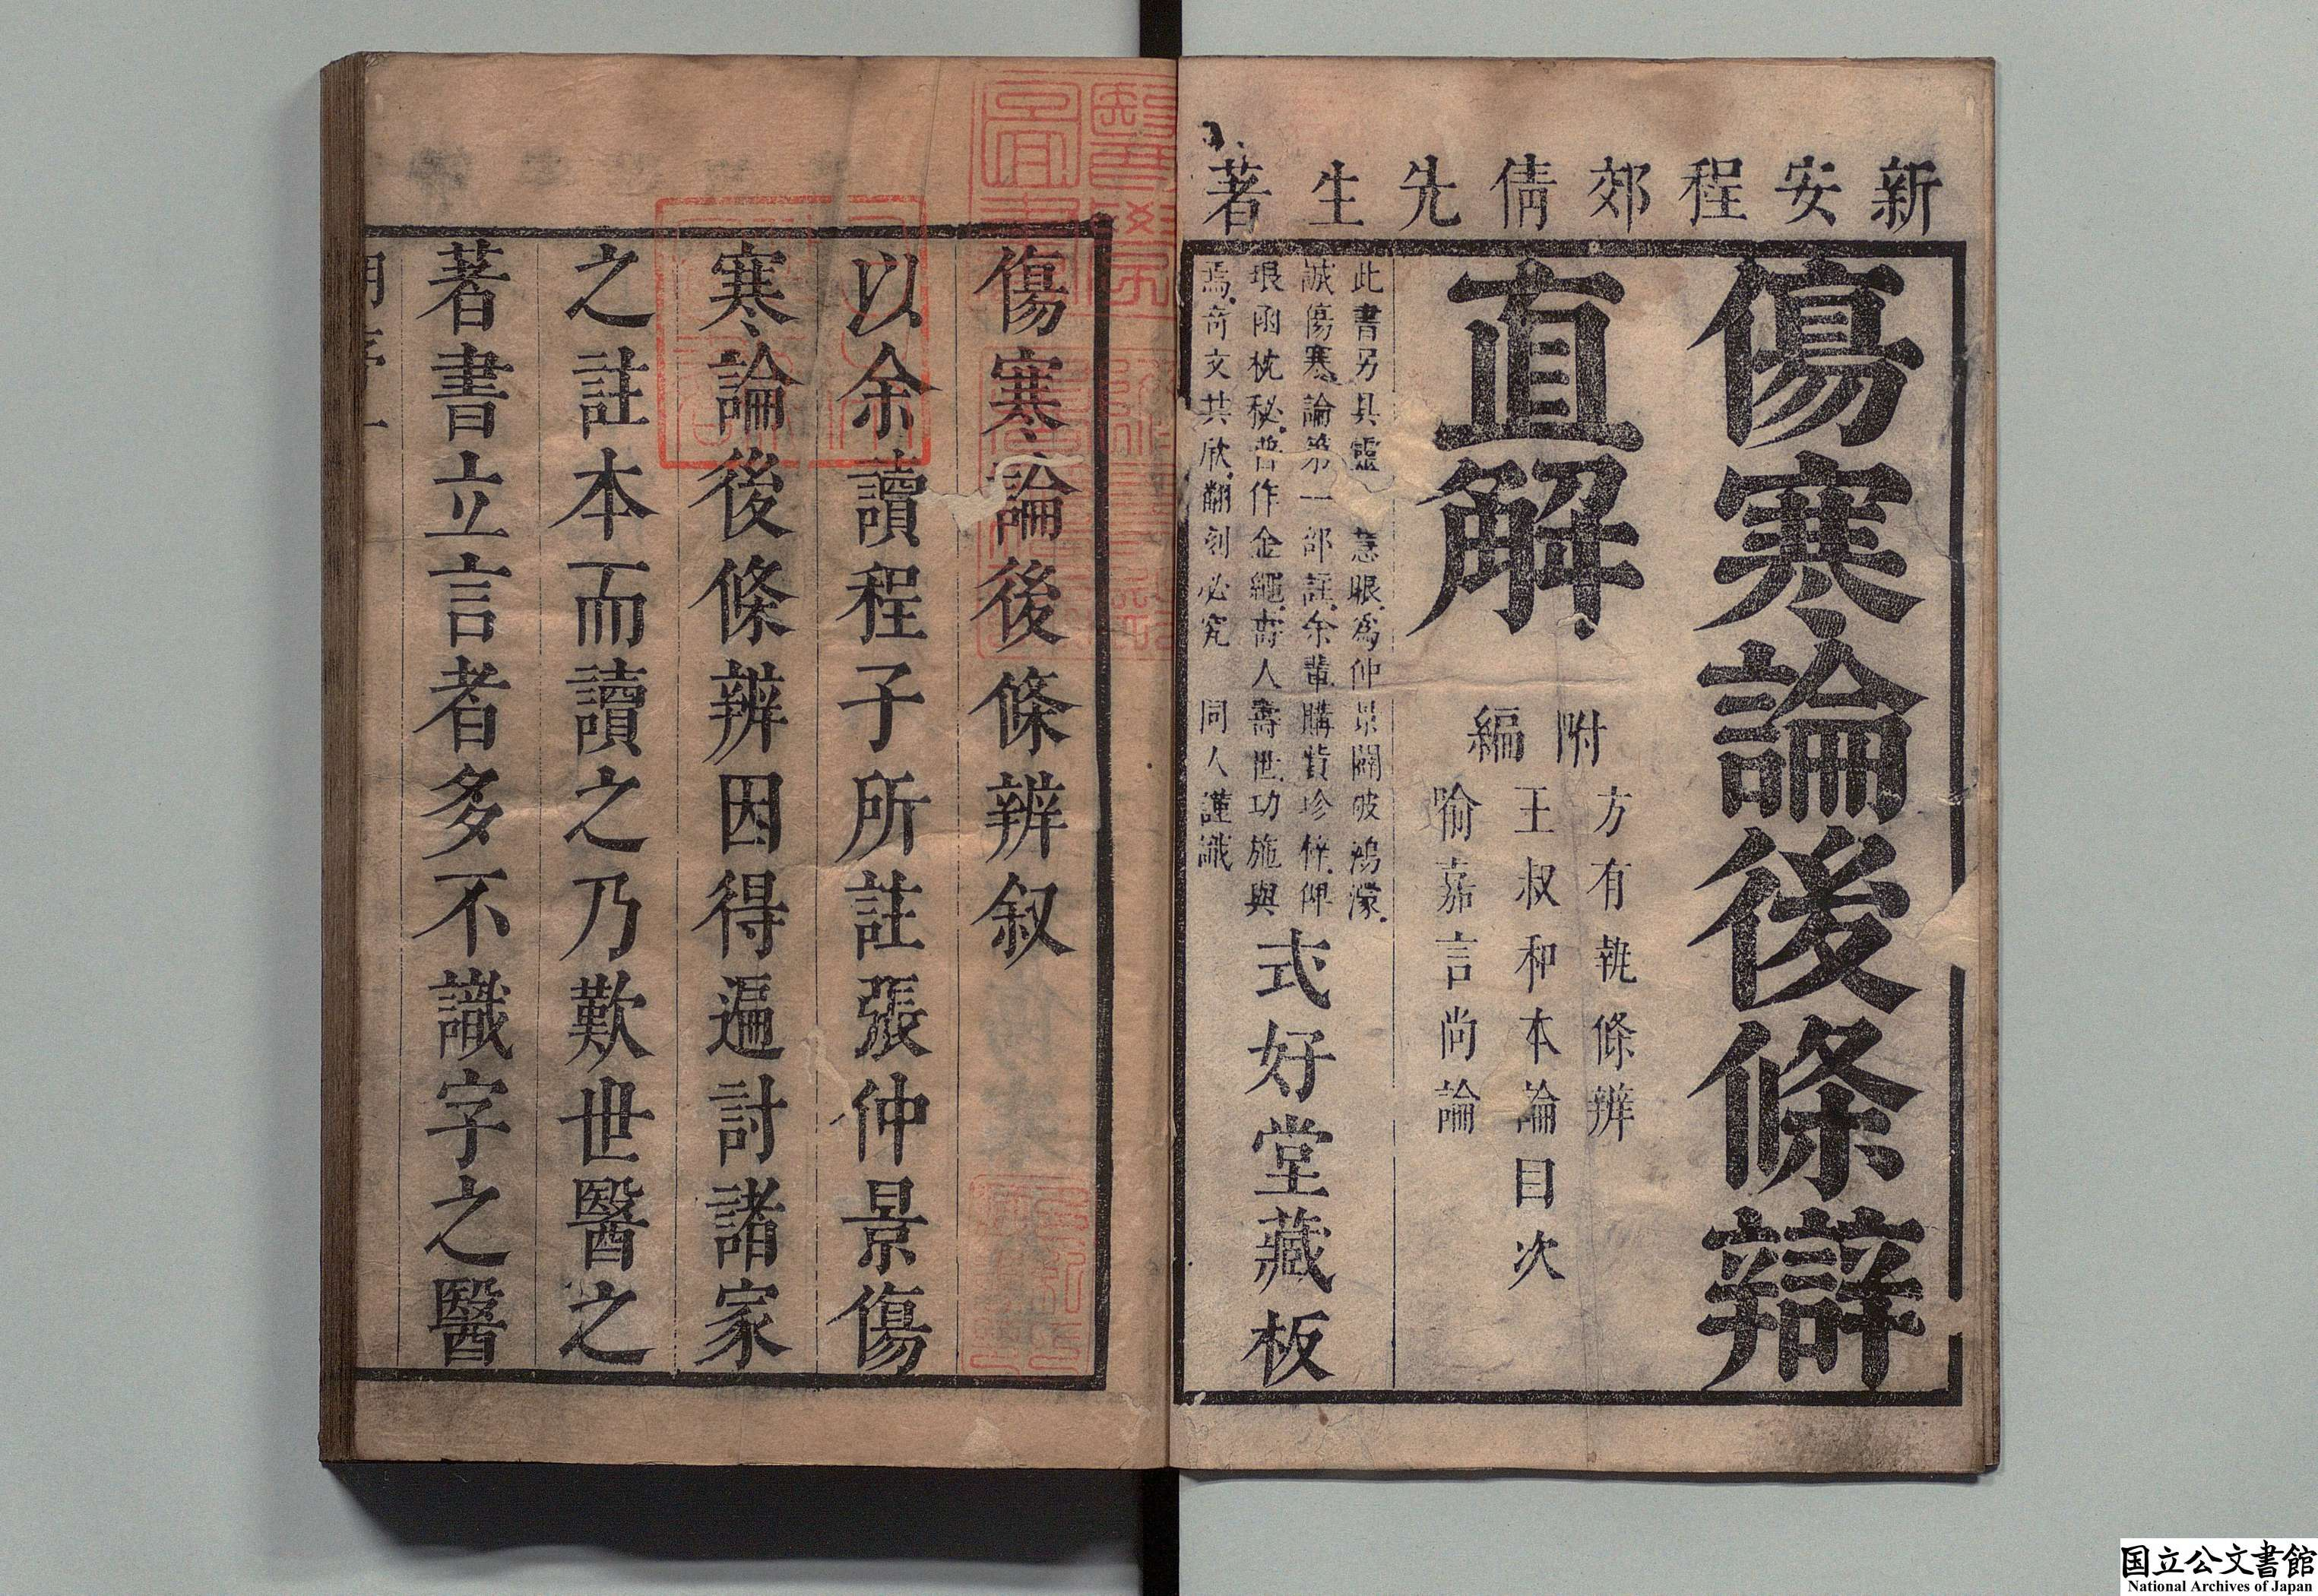 新安程郊倩先生著
傷寒論後條辯
直解
附編
方有執條辨
王叔和本論目次
喻嘉言尚論
此書另具靈 慧眼為仲景闢破鴻濛
誠傷寒論第一部註余輩購貲珍俻俾
琅函枕秘普作金繩壽人壽世功施與
焉奇文共欣翻刻必究 同人謹識
式好堂藏板
傷寒論後條辨叙
以余讀程子所註張仲景傷
寒論後條辨因得遍討諸家
之註本而讀之乃歎世醫之
著書立言者多不識字之醫
国立公文書館
National Archives of Japan